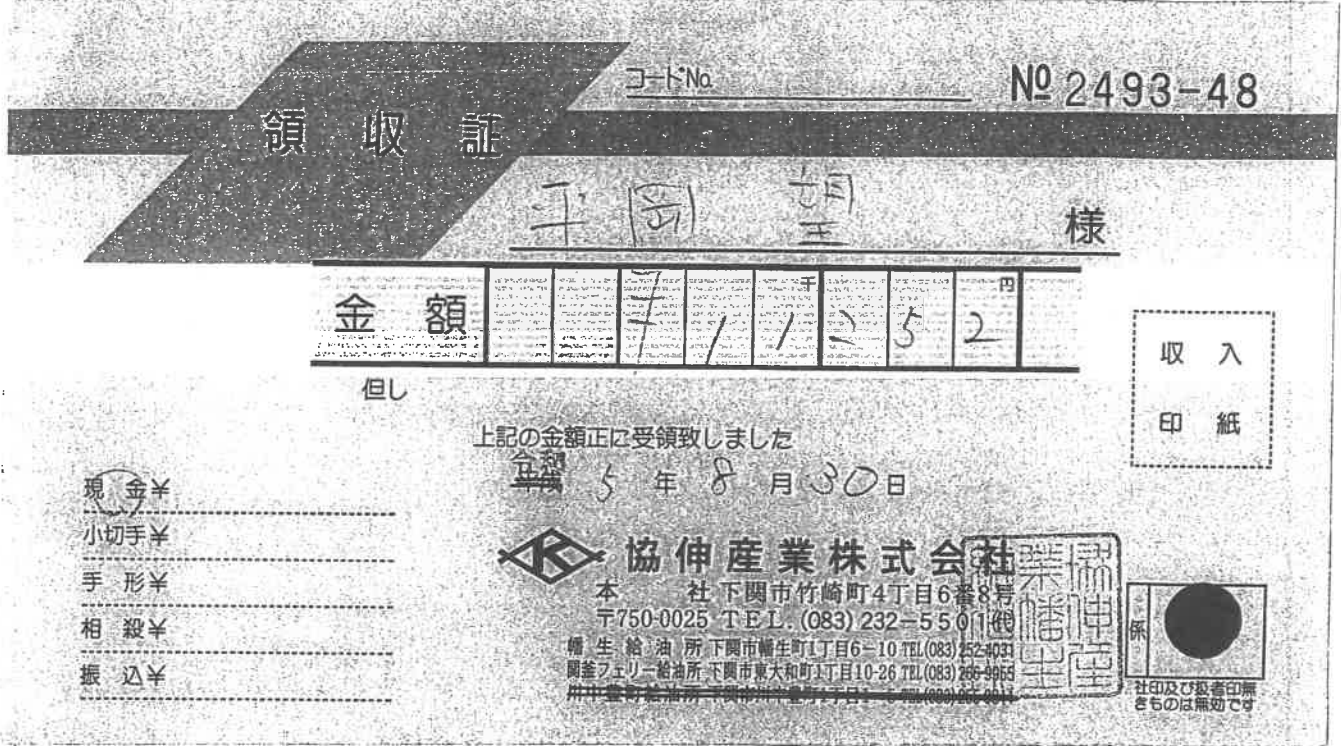 コードNo. № 2493-48
領収証
平岡 望 様
金額 ¥11252 千 円
但し
収入
印紙
上記の金額正に受領致しました
平成 令和 5年8月30日
現金¥
小切手¥
手形¥
相殺¥
振込¥
協伸産業株式会社
本社 下関市竹崎町4丁目6番8号
〒750-0025 TEL.(083)232-5501㈹
幡生給油所 下関市幡生町1丁目6-10 TEL(083)252-4031
関釜フェリー給油所 下関市東大和町1丁目10-26 TEL(083)266-9955
係
社印及び扱者印無
きものは無効です